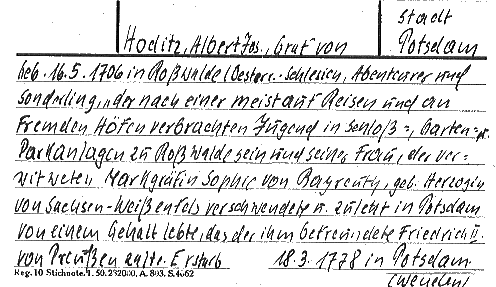 Stadt
Hoditz, Albert Jos., Graf von Potsdam
geb. 16.5.1706 in Roßwalde (Oesterr.-Schlesien, Abenteurer und
Sonderling, „der nach einer meist auf Reisen und an
Fremden Höfen verbrachten Jugend in Schloß=, Garten= u.
Parkanlagen zu Roßwalde sein und seiner Frau, der ver-
witweten Markgräfin Sophie von Bayreuth, geb. Herzogin
von Sachsen-Weißenfels verschwendete u. zuletzt in Potsdam
von einem Gehalt lebte, das der ihm befreundete Friedrich II.
von Preußen zalte. Erstarb 18.3.1778 in Potsdam
Reg. 10 Stichnote. 1. 50. A. 893. S. 4662
(wenden)